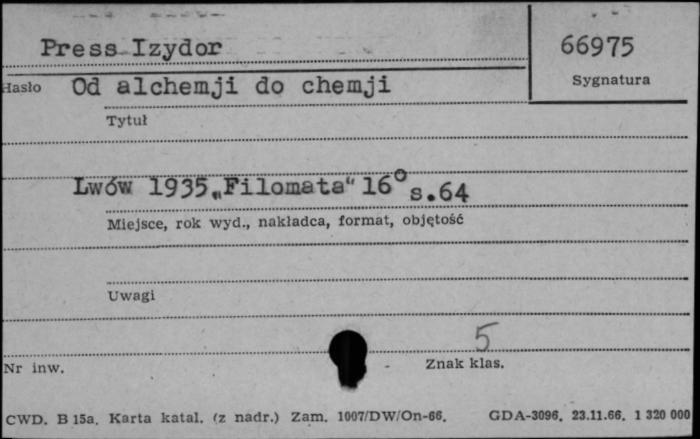 Press Izydor
66975
Hasło Od alchemji do chemji
Sygnatura
Tytuł
Lwów 1935 „Filomata" 16° s.64
Miejsce, rok wyd., nakładca, format, objętość
Uwagi
5
Nr inw.
Znak klas.
CWD. B 15a. Karta katal. (z nadr.) Zam. 1007/DW/On-66. GDA-3096. 23.11.66. 1 320 000